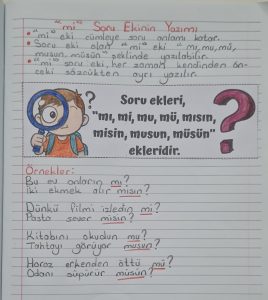 "mi" Soru Ekinin Yazımı
• "mi" eki cümleye soru anlamı katar.
• Soru eki olan "mi" eki "mı, mu, mü,
musun, müsün" şeklinde yazılabilir.
• "mi" soru eki, her zaman kendinden ön-
ceki sözcükten ayrı yazılır.
Soru ekleri,
"mı, mi, mu, mü, mısın,
misin, musun, müsün"
ekleridir.
Örnekler:
Bu ev onların mı?
İki ekmek alır mısın?
Dünkü filmi izledin mi?
Pasta sever misin?
Kitabını okudun mu?
Tahtayı görüyor musun?
Horoz erkenden öttü mü?
Odanı süpürür müsün?